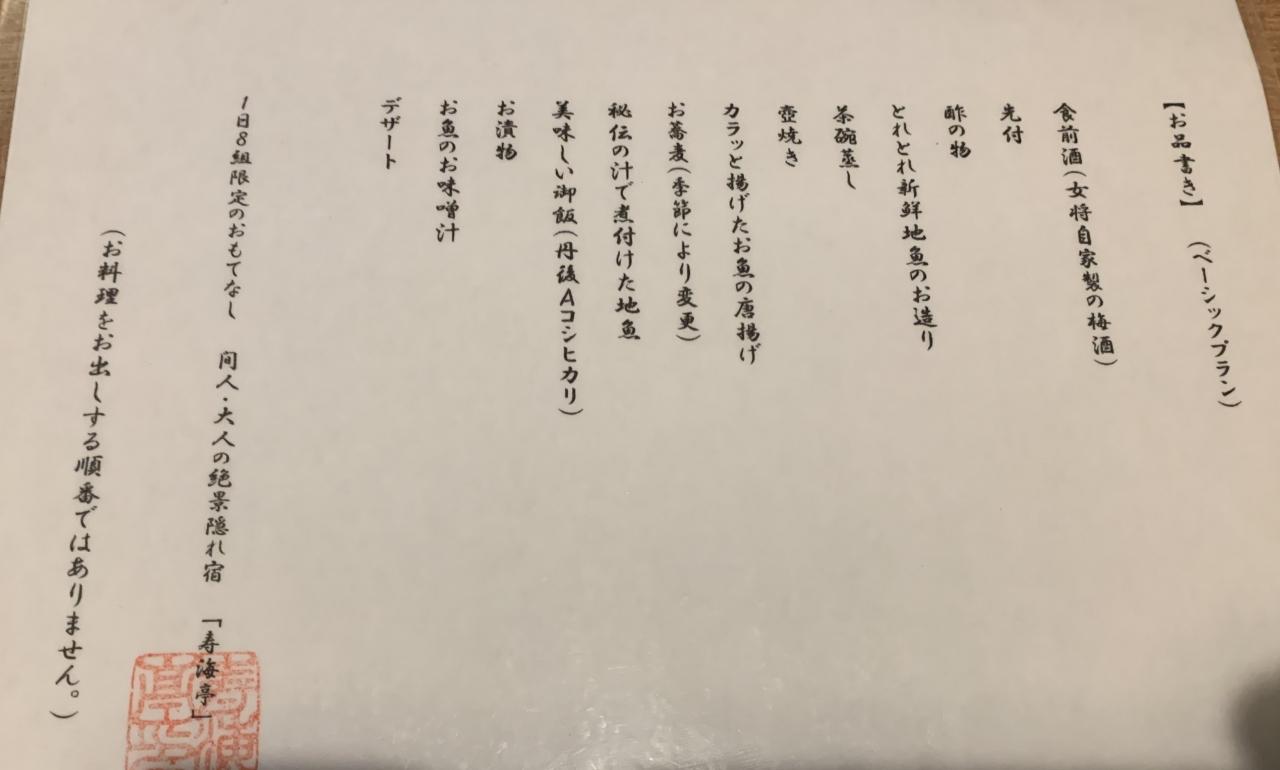 【お品書き】　（ベーシックプラン）
食前酒（女将自家製の梅酒）
先付
酢の物
とれとれ新鮮地魚のお造り
茶碗蒸し
壺焼き
カラッと揚げたお魚の唐揚げ
お蕎麦（季節により変更）
秘伝の汁で煮付けた地魚
美味しい御飯（丹後Aコシヒカリ）
お漬物
お魚のお味噌汁
デザート
1日8組限定のおもてなし　間人・大人の絶景隠れ宿　「寿海亭」
（お料理をお出しする順番ではありません。）